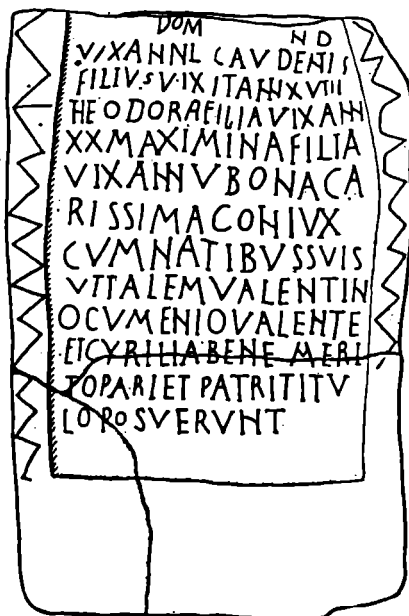 DOM ND
VIXANNL CAVDENTIS
FILIVS VIXITANNXVIII
HEODORAFILIAVIXANN
XXMAXIMINAFILIA
VIXANNVBONACA
RISSIMACONIVX
CVMNATIBVSSVIS
VITALEMVALENTIN
OCVMENIOVALENTE
ETCYRILIABENE MERI
TOPARIET PATRITITV
LOPOSVERVNT